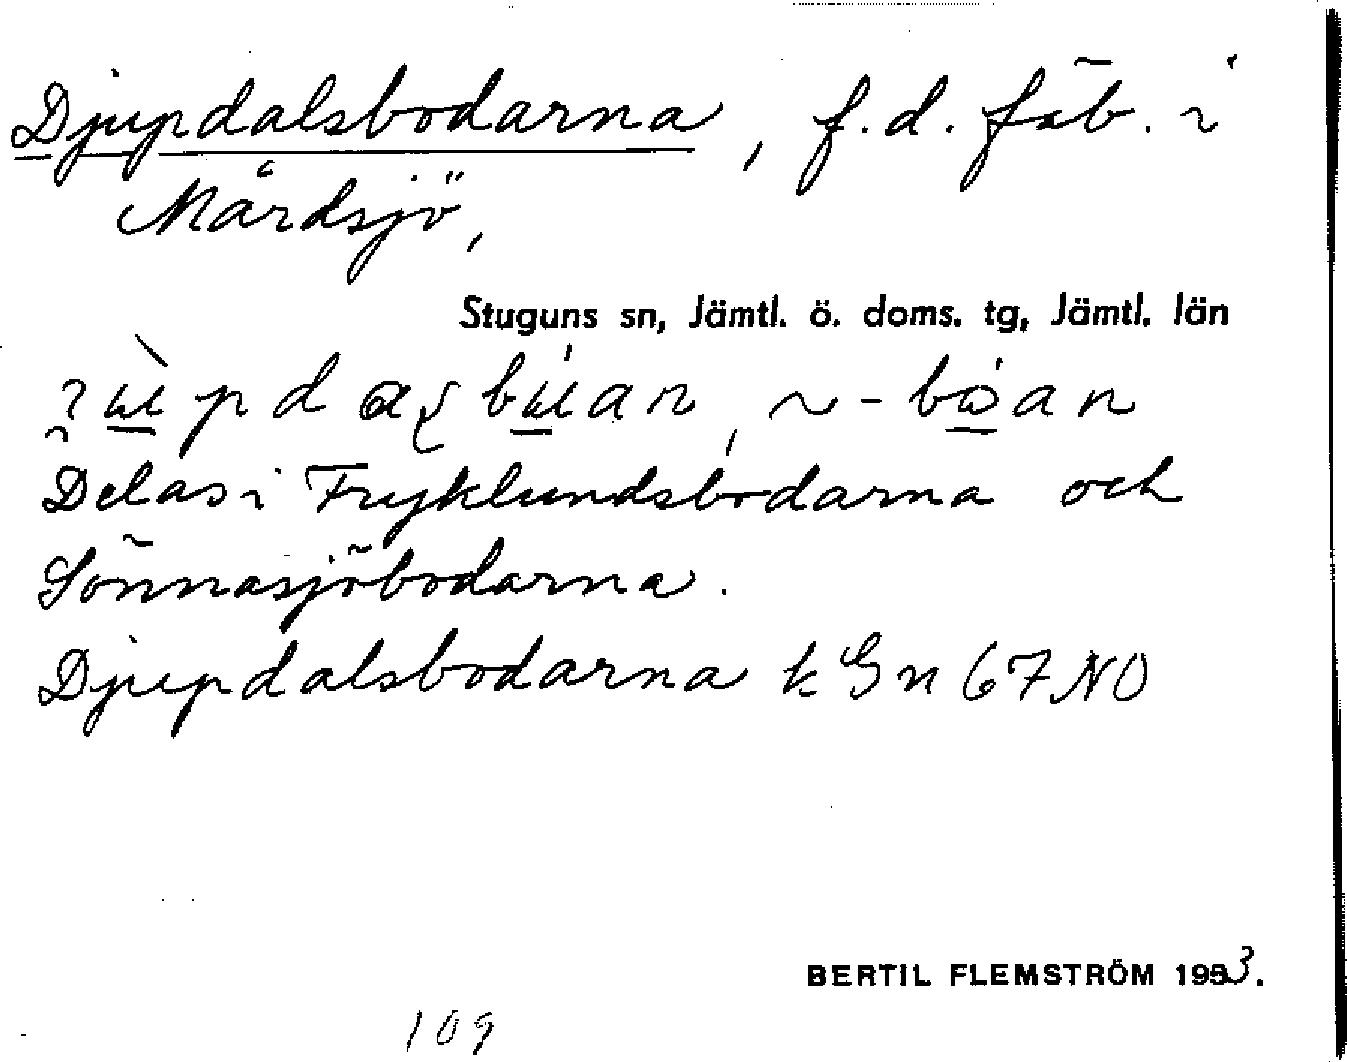 Djupdalsbodarna, f.d. fäb. i
Mårdsjö,
Stuguns sn, Jämtl. ö. doms. tg, Jämtl. län
Delas i Fryklundsbodarna och
Sönnasjöbodarna.
Djupdalsbodarna k Gn 67 NO
BERTIL FLEMSTRÖM 1953.
109